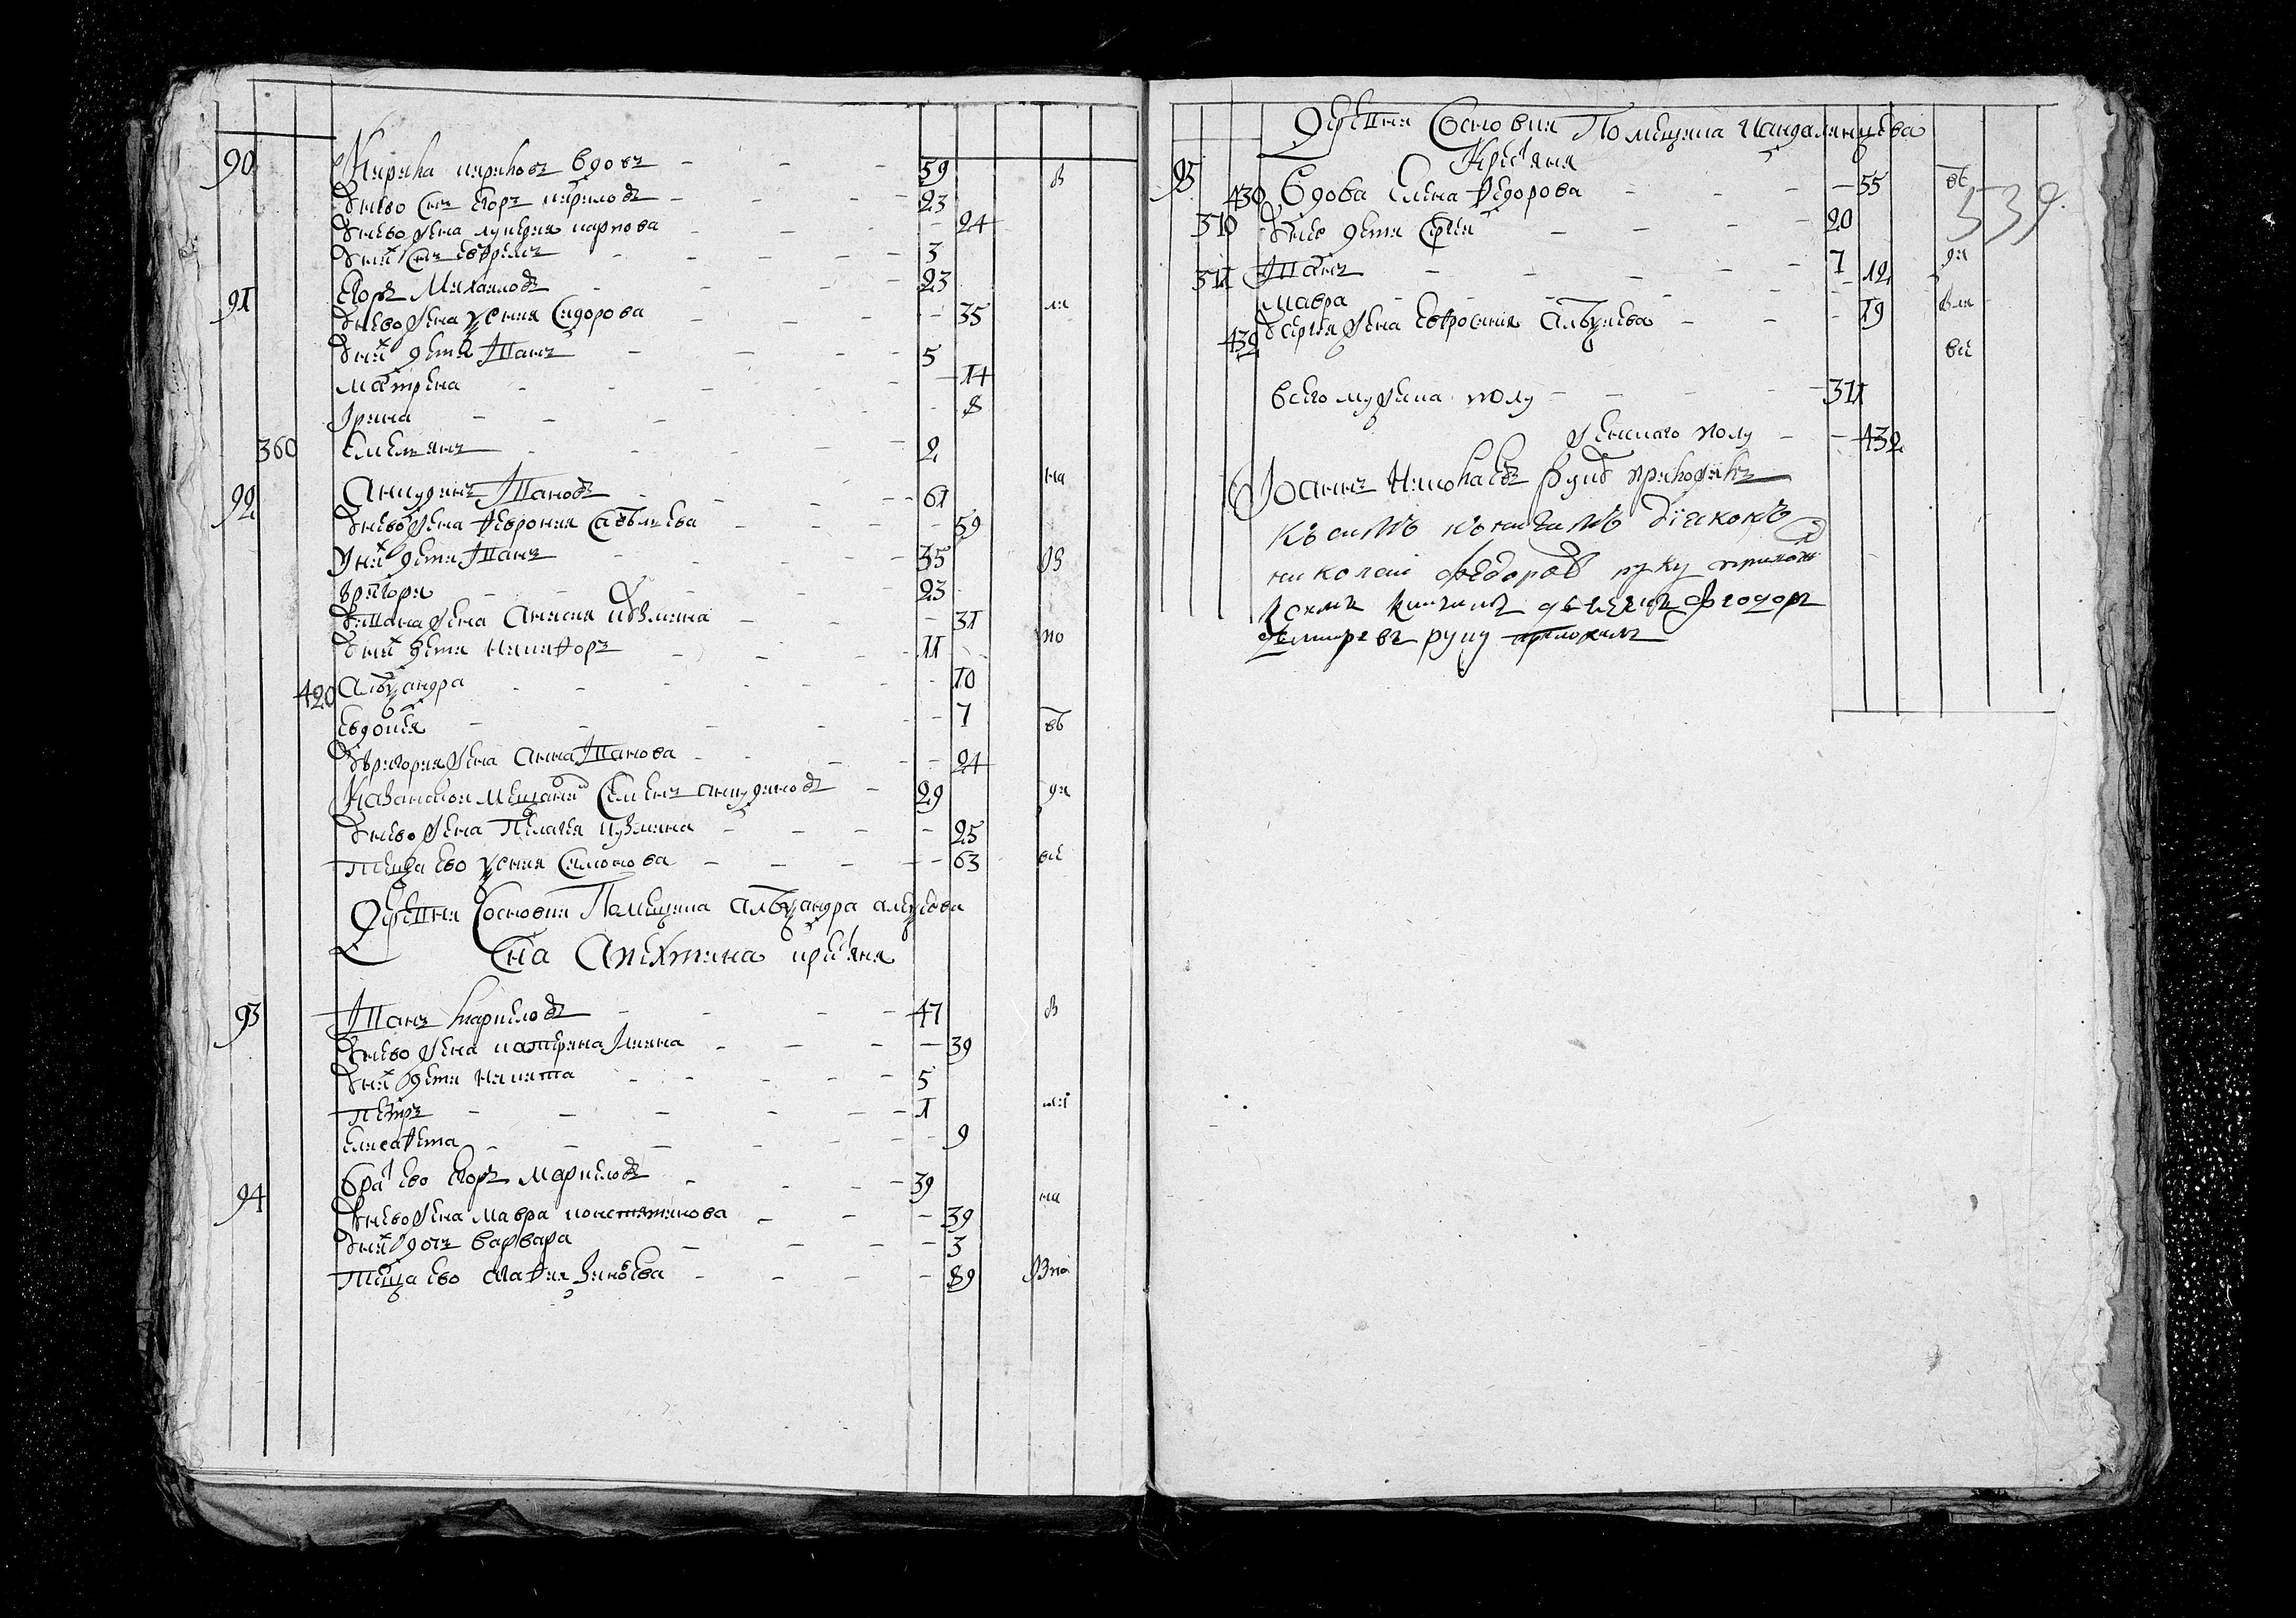 90 Кирила кириловъ вдовъ 59
Унево снъ Егоръ кириловъ 23
Унево жена лукерия карпова 24
Унихъ снъ ефремъ 3
91 Егоръ Михаиловъ 23
Унево жена Ксения Сидорова 35
Унихъ дети Иванъ 5
матрена 14
Ирина 8
360 Емельянъ 2
92 Анкудинъ Ивановъ 61
Унево жена Феврония Савельева 59
Унихъ дети Иванъ 35
григори 23
Уивана жена Анисия 31
Унихъ дети Никифоръ 11
420 Александра 10
Евдокия 7
Угригория жена Анна Иванова 24
Казанской мещанинъ Семенъ анкудиновъ 29
Унево жена Пелагея кузмина 25
Теща ево Ксения Симонова 63
Деревни Сосновки Помещика александра алексеева
Сна Апехтина крестьяня
93 Иванъ гавриловъ 47
Унево жена катерина Ильина 39
Унихъ дети Никита 5
Петръ 1
Елисафета 9
94 братъ ево Егоръ гавриловъ 39
Унево жена мавра констянтинова 39
Унихъ дочь варвара 3
Теща ево Агафия Зиновьева 89
Деревни Сосновки Помещика Кандалинцева
Крестьяня
539
95 430 Вдова Елена Федорова 55
370 Унее дети Сергеи 20
371 Иванъ 7
Мавра 12
432 Усергея жена Евфросиния Алексеева 19
всего мужеска полу 371
женскаго полу 432
Иоаннъ Николаевъ руку приложилъ
Къ симъ книгамъ диаконъ
николаи федоровъ руку приложи
К симъ книгамъ дьячекъ Феодоръ
руку приложилъ